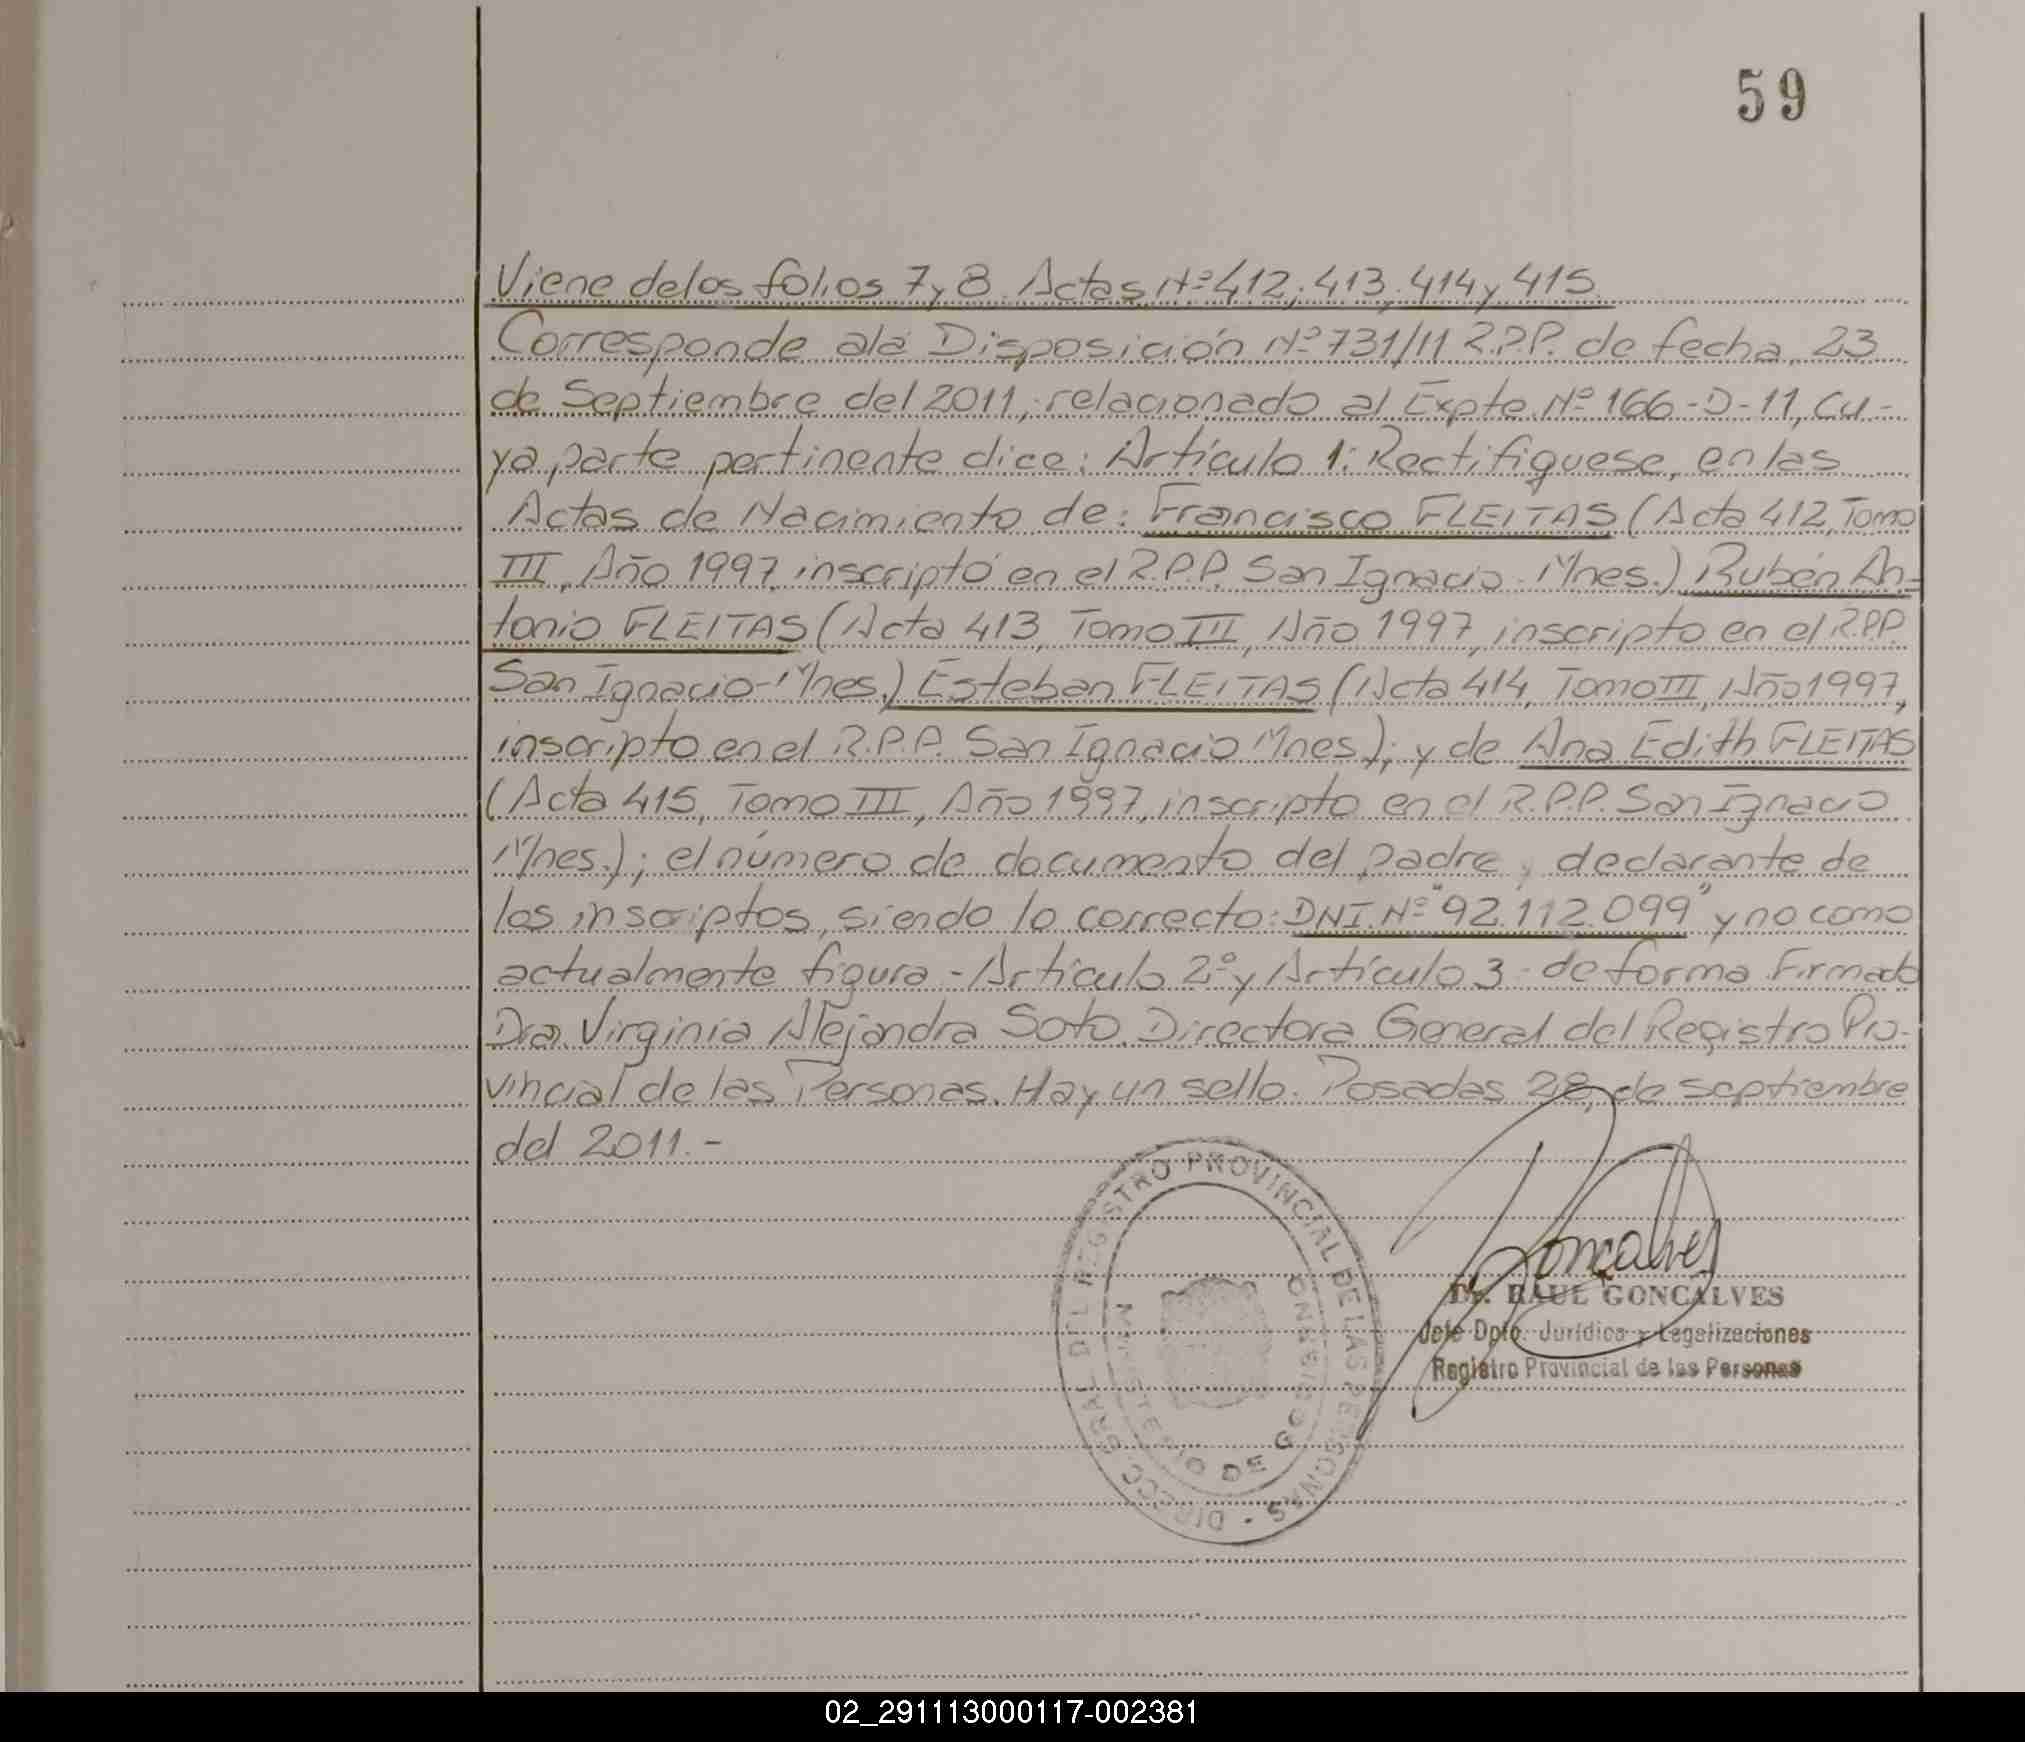 59
Viene delos folios 7 y 8. Actas Nº 412, 413, 414 y 415.
Corresponde ala Disposición Nº 731/11 R.P.P. de fecha, 23
de Septiembre del 2011, relacionado al Expte. Nº 166-D-11, Cu-
ya parte pertinente dice: Artículo 1: Rectifiquese, en las
Actas de Nacimiento de: Francisco FLEITAS (Acta 412, Tomo
III, Año 1997, inscripto en el R.P.P. San Ignacio - Mnes.) Rubén An-
tonio FLEITAS (Acta 413, Tomo III, Año 1997, inscripto en el R.P.P.
San Ignacio - Mnes.) Esteban FLEITAS (Acta 414, Tomo III, Año 1997,
inscripto en el R.P.P. San Ignacio Mnes.); y de Ana Edith FLEITAS
(Acta 415, Tomo III, Año 1997, inscripto en el R.P.P. San Ignacio
Mnes.); el número de documento del padre y declarante de
los inscriptos, siendo lo correcto: DNI. Nº "92.112.099" y no como
actualmente figura - Artículo 2º y Artículo 3 - de forma Firmado
Dra. Virginia Alejandra Soto. Directora General del Registro Pro-
vincial de las Personas. Hay un sello. Posadas 28, de septiembre
del 2011.-
DIRECC. GRAL DEL REGISTRO PROVINCIAL DE LAS PERSONAS -
MINISTERIO DE GOBIERNO
Goncalves
Dr. RAUL GONCALVES
Jefe Dpto. Jurídico y Legalizaciones
Registro Provincial de las Personas
02_291113000117-002381